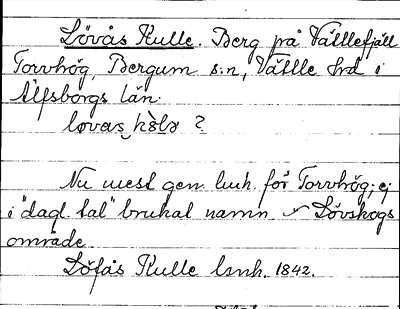 Lövås Kulle. Berg på Vättlefjäll
Torvhög, Bergum s:n, Vättle hrd i
Älfsborgs län.
lovas ?
Nu mest gen. för Torvhög; ej
i "dagl. tal" brukat namn Lövskogs
område.
Löfås Kulle lmh. 1842.